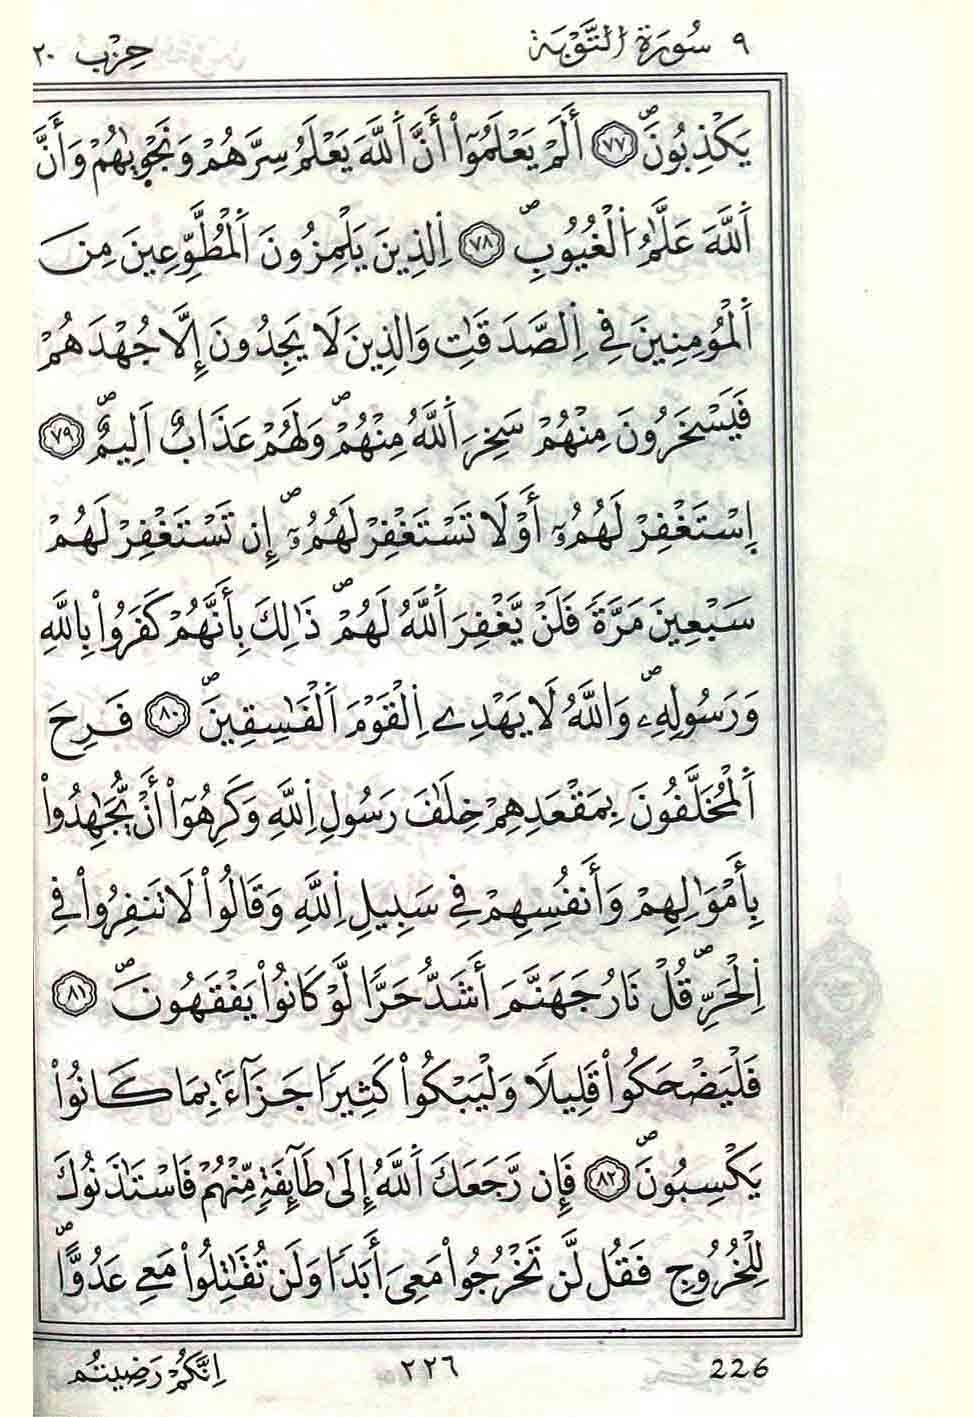 ٩ سُورَةُ التَّوْبَة حِزْب ٢٠
يَكْذِبُونَۖ ٧٧ أَلَمْ يَعْلَمُوٓاْ أَنَّ اَ۬للَّهَ يَعْلَمُ سِرَّهُمْ وَنَجْو۪يٰهُمْ وَأَنَّ
اَ۬للَّهَ عَلَّٰمُ اُ۬لْغُيُوبِۖ ٧٨ اِ۬لذِينَ يَلْمِزُونَ اَ۬لْمُطَّوِّعِينَ مِنَ
اَ۬لْمُومِنِينَ فِے اِ۬لصَّدَقَٰتِ وَالذِينَ لَا يَجِدُونَ إِلَّا جُهْدَهُمْ
فَيَسْخَرُونَ مِنْهُمْ سَخِرَ اَ۬للَّهُ مِنْهُمْۖ وَلَهُمْ عَذَابٌ اَلِيمٌۖ ٧٩
اِسْتَغْفِرْ لَهُمُۥٓ أَوْ لَا تَسْتَغْفِرْ لَهُمُۥٓۖ إِن تَسْتَغْفِرْ لَهُمْ
سَبْعِينَ مَرَّةٗ فَلَنْ يَّغْفِرَ اَ۬للَّهُ لَهُمْۖ ذَٰلِكَ بِأَنَّهُمْ كَفَرُواْ بِاللَّهِ
وَرَسُولِهِۦۖ وَاللَّهُ لَا يَهْدِے اِ۬لْقَوْمَ اَ۬لْفَٰسِقِينَۖ ٨٠ فَرِحَ
اَ۬لْمُخَلَّفُونَ بِمَقْعَدِهِمْ خِلَٰفَ رَسُولِ اِ۬للَّهِ وَكَرِهُوٓاْ أَنْ يُّجَٰهِدُواْ
بِأَمْوَٰلِهِمْ وَأَنفُسِهِمْ فِے سَبِيلِ اِ۬للَّهِ وَقَالُواْ لَا تَنفِرُواْ فِے
اِ۬لْحَرِّۖ قُلْ نَارُ جَهَنَّمَ أَشَدُّ حَرّاٗ لَّوْ كَانُواْ يَفْقَهُونَۖ ٨١
فَلْيَضْحَكُواْ قَلِيلاٗ وَلْيَبْكُواْ كَثِيراٗ جَزَآءَۢ بِمَا كَانُواْ
يَكْسِبُونَۖ ٨٢ فَإِن رَّجَعَكَ اَ۬للَّهُ إِلَىٰ طَآئِفَةٖ مِّنْهُمْ فَاسْتَٰذَنُوكَ
لِلْخُرُوجِ فَقُل لَّن تَخْرُجُواْ مَعِيَ أَبَداٗ وَلَن تُقَٰتِلُواْ مَعِے عَدُوّاًۖ
اِنَّكُمْ رَضِيتُم ٢٢٦ 226